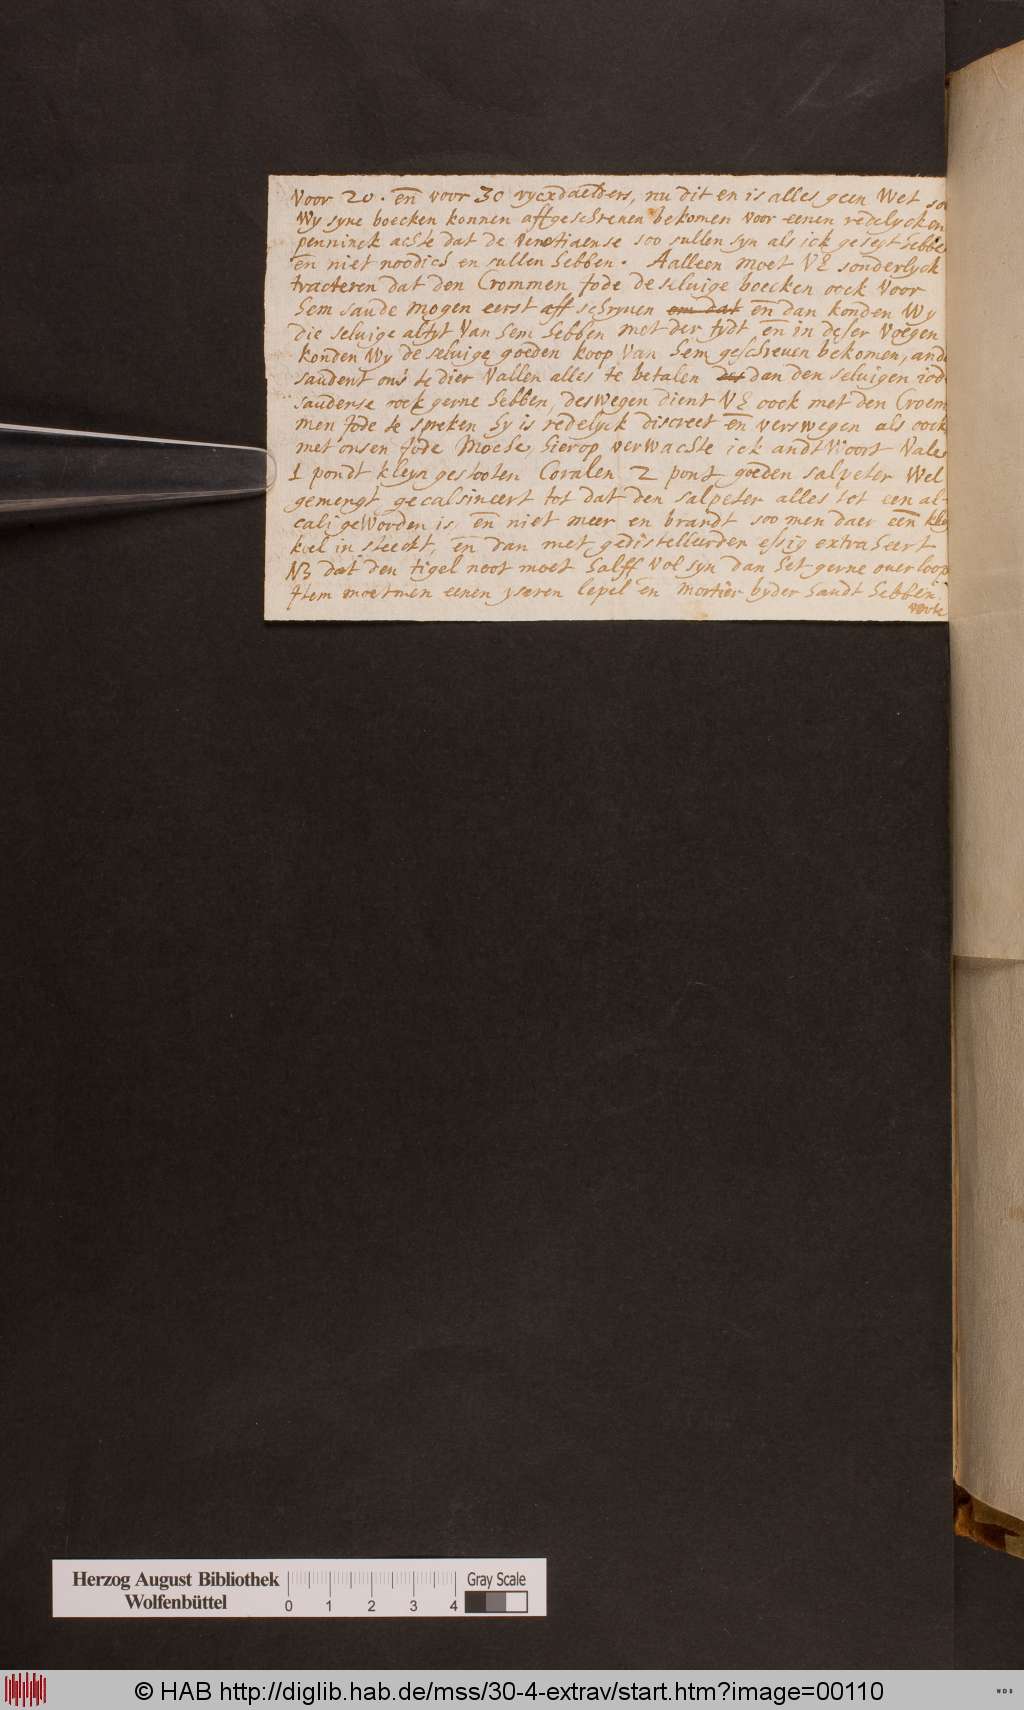 Voor 20. en̄ voor 30 rycxdaelders, nu dit en is alles geen Wet
Wy syne boecken konnen affgeschreuen bekomen voor eenen redelycken
penninck achte dat de venetiaense soo sullen syn als ick geseyt hebbe
en̄ niet noodich en sullen hebben. Aalleen moet VE sonderlyck
tracteren dat den Crommen Jode de seluige boecken oock Voor
hem saude mogen eerst aff schryuen om dat en̄ dan konden Wy
die seluige altyt Van hem hebben met der tydt en̄ in deser voegen
konden Wy de seluige goeden koop Van hem geschreuen bekomen,
saudent ons te dier Vallen alles te betalen des dan den seluigen
saudense oock gerne hebben, deswegen dient VE oock met den Croem
men Jode te spreken hy is redelyck discreet en̄ verswegen als oock
met onsen Jode Moche, hierop verwachte ick andtWoort Vale
1 pondt kleyn gestooten Coralen 2 pont goeden salpeter Wel
gemengt gecalsineert tot dat den salpeter alles tot een al-
cali geWorden is en̄ niet meer en brandt soo men daer een
koel in steeckt, en̄ dan met gedistelleerden essig extraheert
NB dat den tigel noot moet halff vol syn dan het gerne ouerloop
Item moetmen eenen yseren lepel en mortier byder handt hebben.
Herzog August Bibliothek
Wolfenbüttel
0 1 2 3 4
Gray Scale
© HAB http://diglib.hab.de/mss/30-4-extrav/start.htm?image=00110
WDB